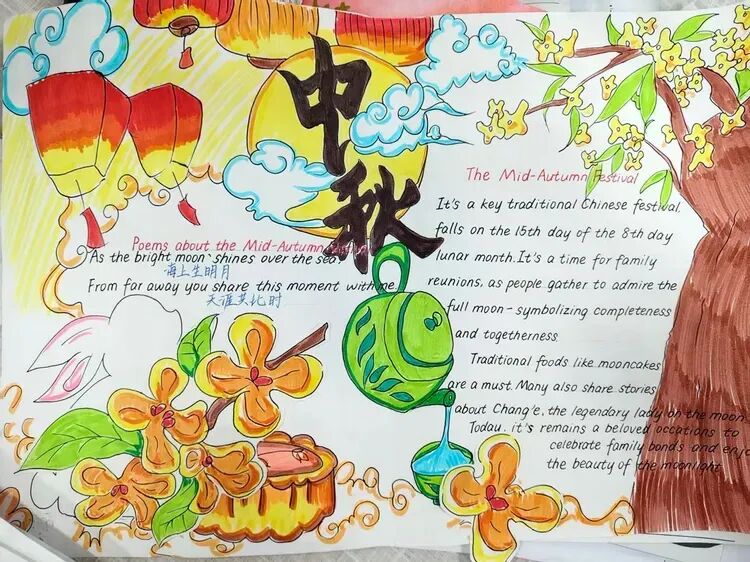 中秋
Poems about the Mid-Autumn
As the bright moon shines over the sea.
海上生明月
From far away you share this moment with me.
天涯共此时
The Mid-Autumn Festival
It's a key traditional Chinese festival,
falls on the 15th day of the 8th day
lunar month. It's a time for family
reunions, as people gather to admire the
full moon - symbolizing completeness
and togetherness
Traditional foods like mooncakes
are a must. Many also share stories
about Chang'e, the legendary lady on the moon.
Today. it's remains a beloved occations to
celebrate family bonds and enjo
the beauty of the moonlight